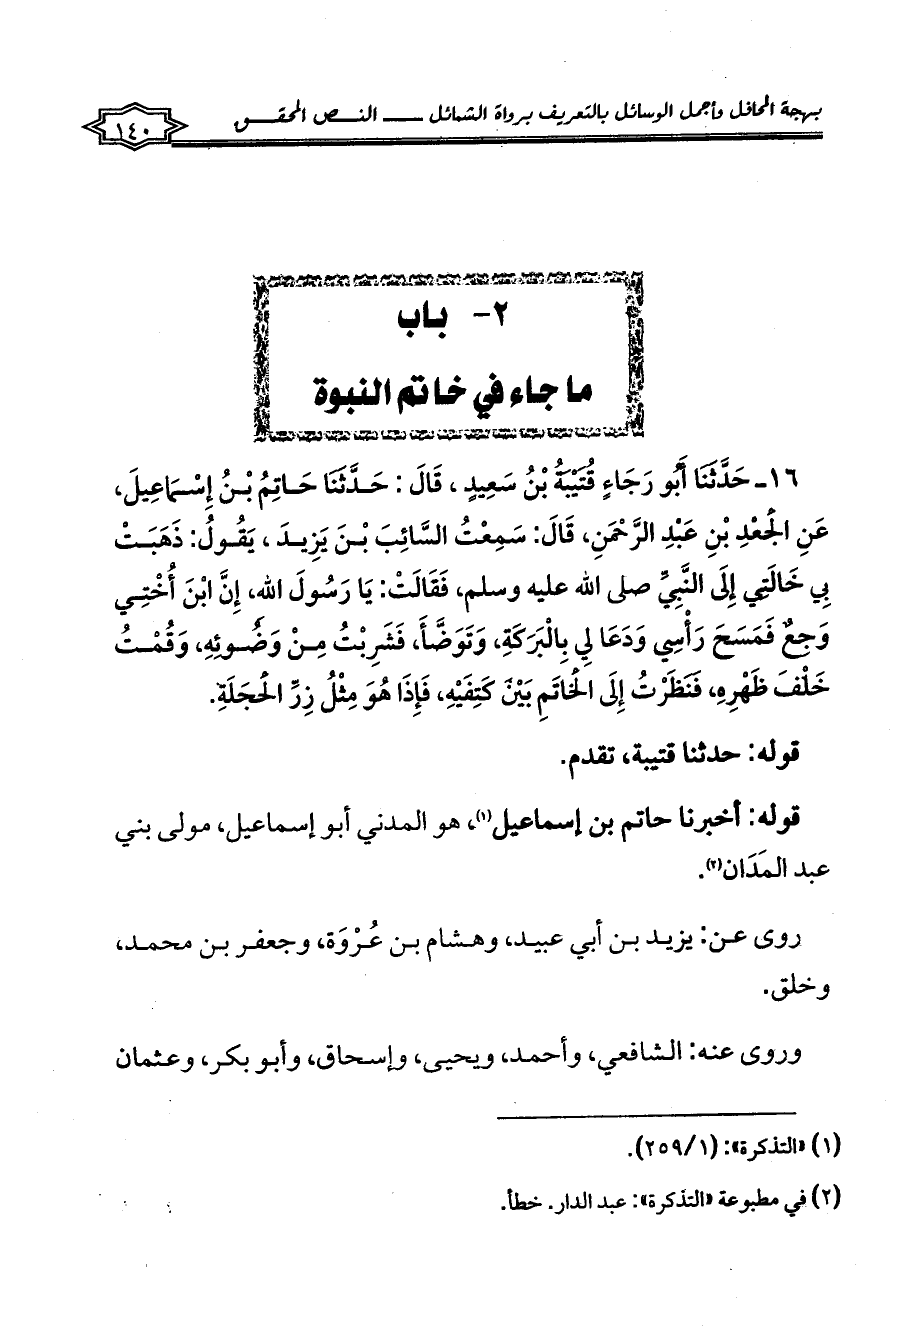 بهجة المحافل وأجمل الوسائل بالتعريف برواة الشمائل ـــــ النـــص المحقـــق
١٤٠
٢- باب
ما جاء في خاتم النبوة
١٦ـ حَدَّثَنَا أَبُو رَجَاءٍ قُتَيْبَةُ بْنُ سَعِيدٍ، قَالَ: حَـدَّثَنَا حَـاتِمُ بْـنُ إِسْـمَاعِيلَ،
عَنِ الجُعْدِ بْنِ عَبْدِ الرَّحْمَنِ، قَالَ: سَمِعْتُ السَّائِبَ بْـنَ يَزِيـدَ، يَقُـولُ: ذَهَبَـتْ
بِي خَالَتِي إِلَى النَّبِيِّ صلى الله عليه وسلم، فَقَالَتْ: يَا رَسُولَ الله، إِنَّ ابْنَ أُخْتِـي
وَجِعٌ فَمَسَحَ رَأْسِي وَدَعَا لِي بِالْبَرَكَةِ، وَتَوَضَّأَ، فَشَرِبْتُ مِـنْ وَضُـوئِهِ، وَقُمْـتُ
خَلْفَ ظَهْرِهِ، فَنَظَرْتُ إِلَى الْخَاتَمِ بَيْنَ كَتِفَيْهِ، فَإِذَا هُوَ مِثْلُ زِرِّ الْحَجَلَةِ.
قوله: حدثنا قتيبة، تقدم.
قوله: أخبرنا حاتم بن إسماعيل(١)، هو المدني أبو إسماعيل، مولى بني
عبد المَدَان(٢).
روى عـن: يزيـد بـن أبي عبيد، وهـشام بـن عُرْوَة، وجعفـر بـن محمـد،
وخلق.
وروى عنـه: الشافعي، وأحمـد، ويحيـى، وإسـحاق، وأبو بكـر، وعـثمان
(١) «التذكرة»: (١/ ٢٥٩).
(٢) في مطبوعة «التذكرة»: عبد الدار. خطأ.